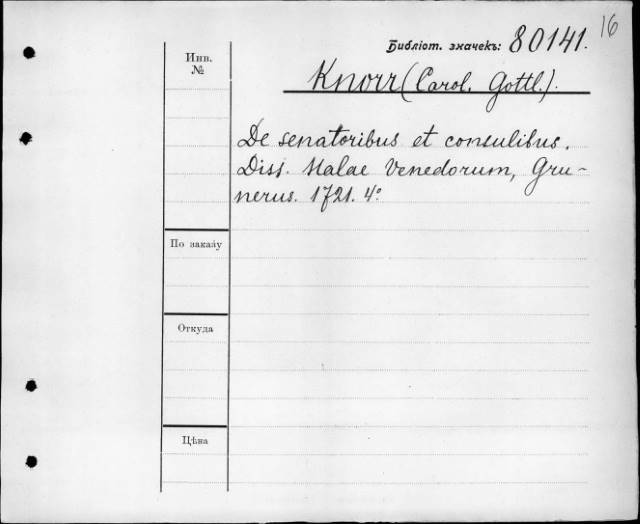 16
Библіот. значекъ: 80141.
Инв.
№
Knorr (Carol. Gottl.).
De senatoribus et consulibus.
Diss. Halae Venedorum, Gru-
nerus. 1721. 4º
По заказу
Откуда
Цѣна